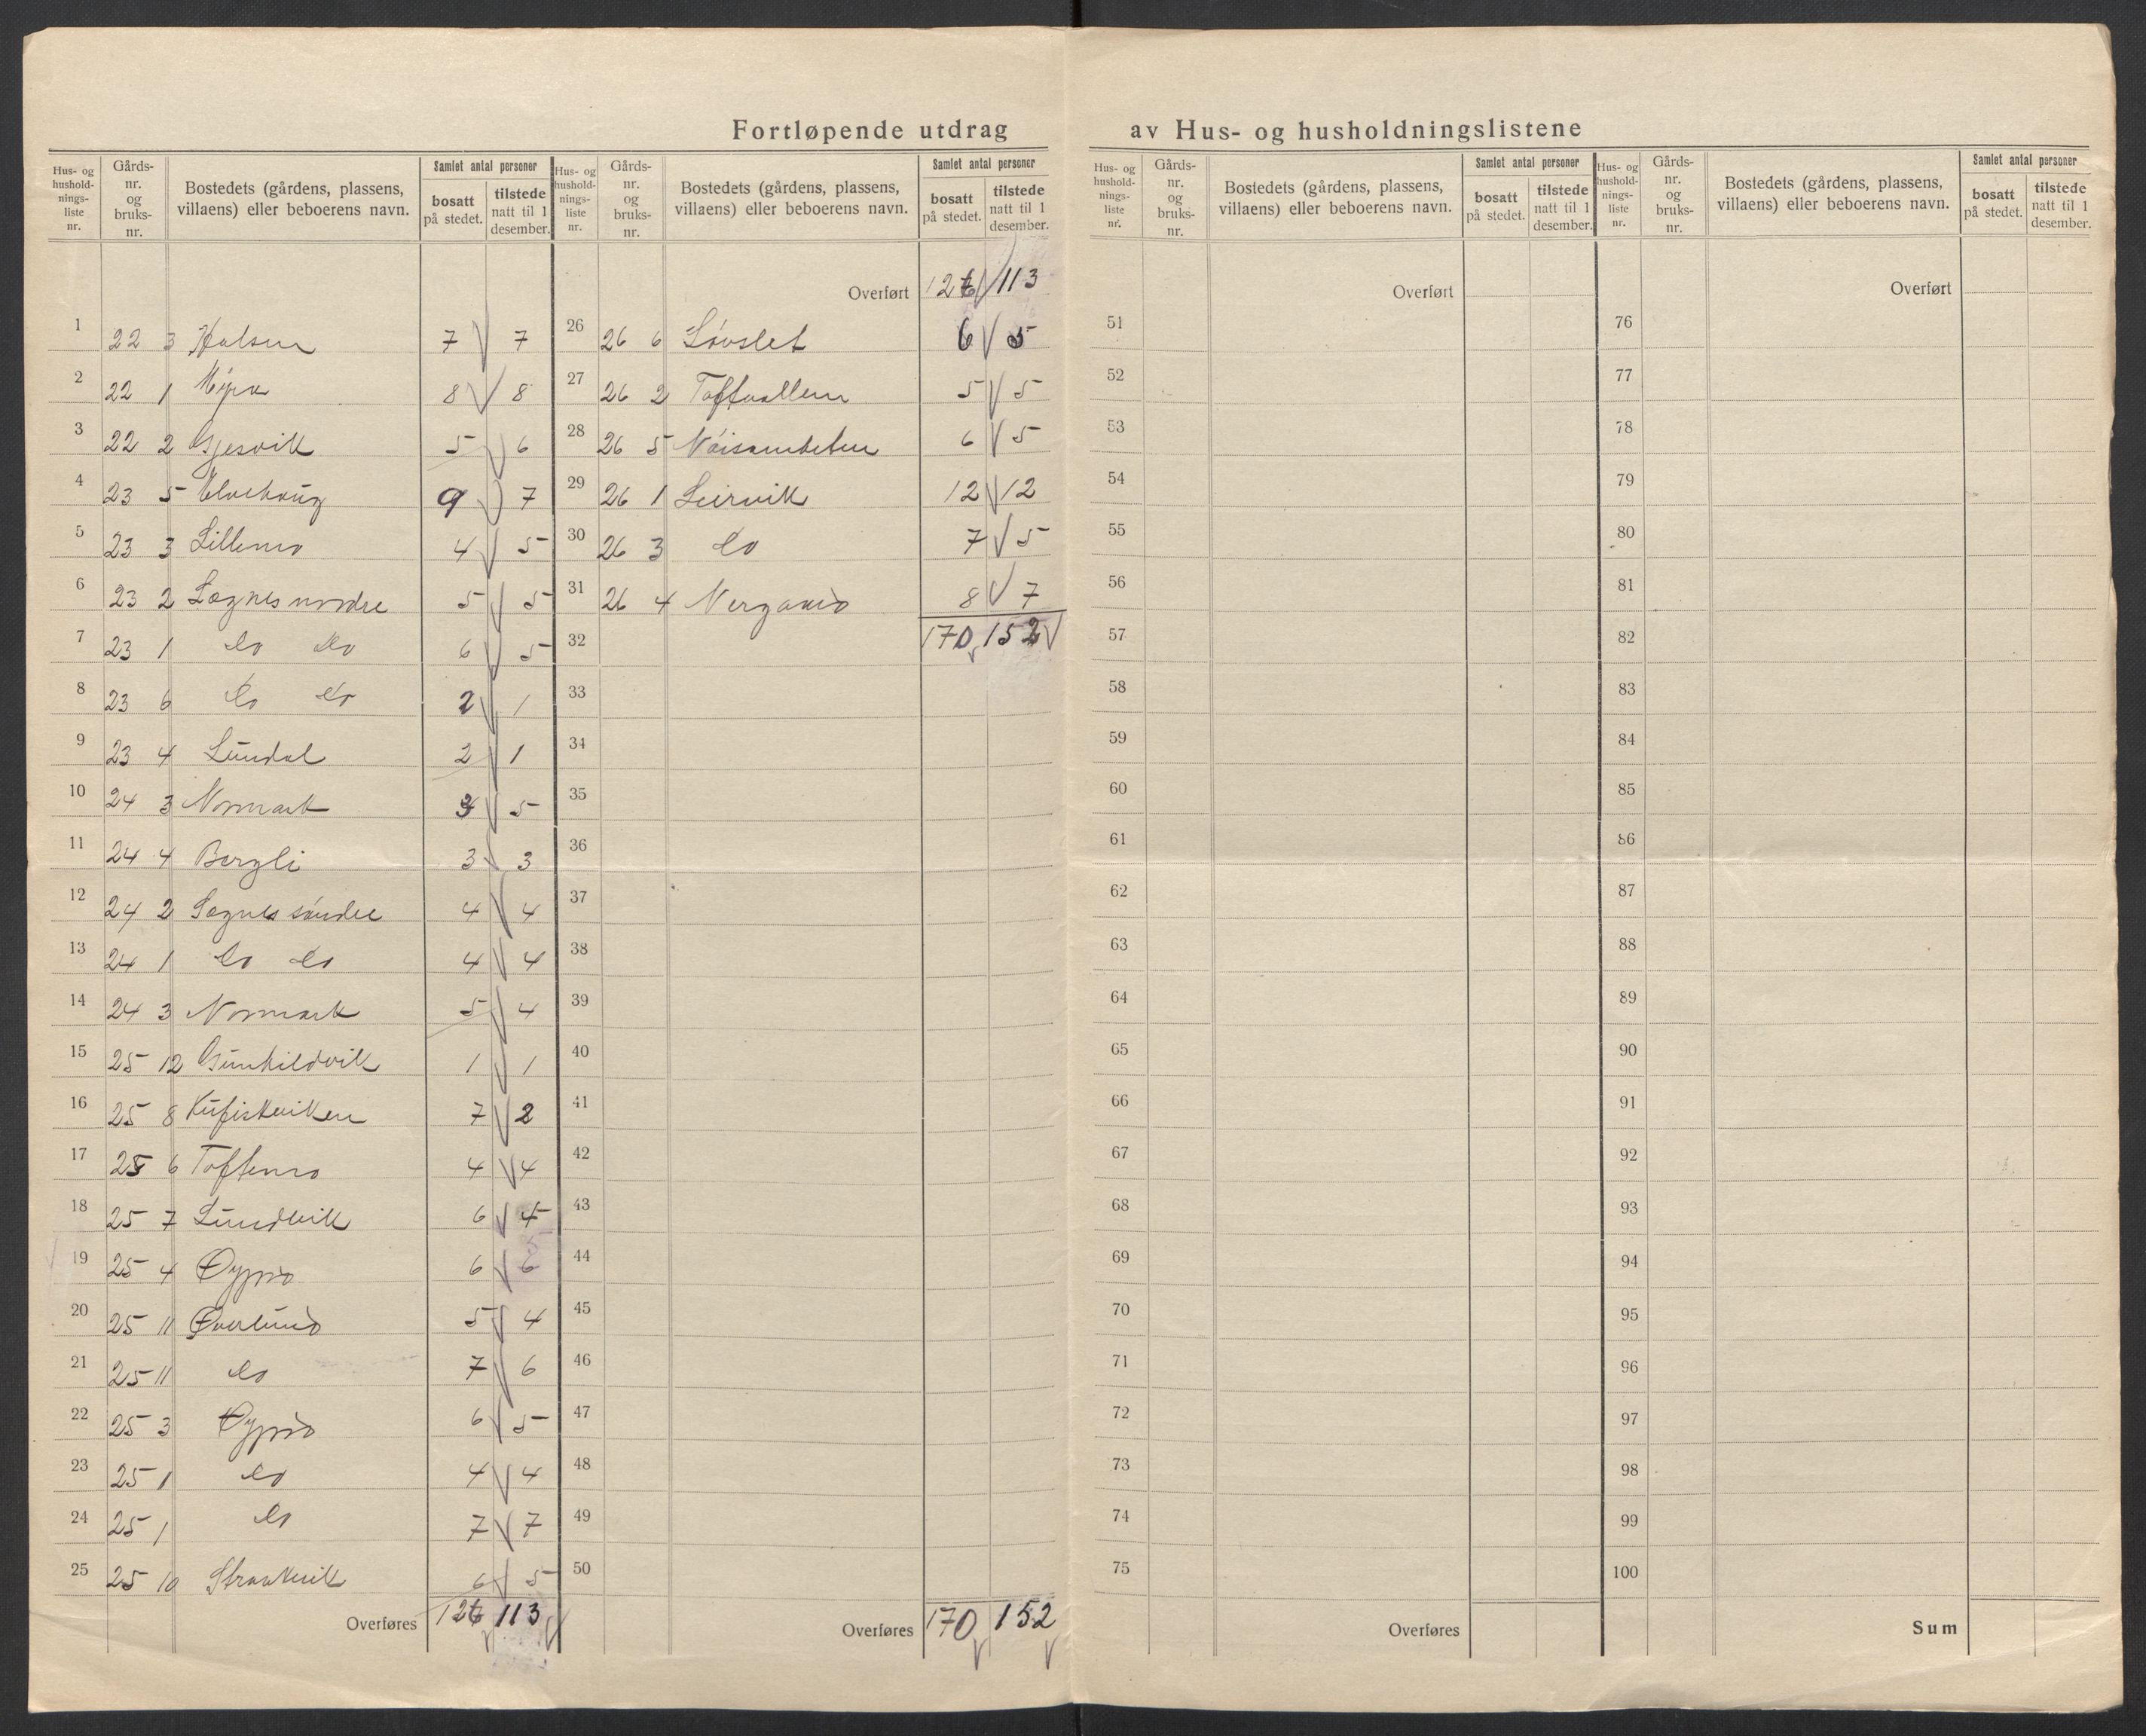 Fortløpende utdrag av Hus- og husholdningslistene
Hus- og hushold-nings-liste nr. | Gårds-nr. og bruks-nr. | Bostedets (gårdens, plassens, villaens) eller beboerens navn. | Samlet antal personer | bosatt på stedet. | tilstede natt til 1 desember.
1 22 3 Halsen 7 7
2 22 1 Myra 8 8
3 22 2 Gjesvik 5 6
4 23 5 Elvehaug 9 7
5 23 3 Lillemo 4 5
6 23 2 Sognes nordre 5 5
7 23 1 do do 6 5
8 23 6 do do 2 1
9 23 4 Lundal 2 1
10 24 3 Normark 3 5
11 24 4 Bergli 3 3
12 24 2 Sognes søndre 4 4
13 24 1 do do 4 4
14 24 3 Normark 5 4
15 25 12 Gunhildvik 1 1
16 25 8 Kufiskviken 7 2
17 25 6 Toftemo 4 4
18 25 7 Lundvik 6 4
19 25 4 6 6
20 25 11 Øverlund 5 4
21 25 11 do 7 6
22 25 3 6 5
23 25 1 do 4 4
24 25 1 do 7 7
25 25 10 Strandvik 6 5
Overføres 126 113
Hus- og hushold-nings-liste nr. | Gårds-nr. og bruks-nr. | Bostedets (gårdens, plassens, villaens) eller beboerens navn. | Samlet antal personer | bosatt på stedet. | tilstede natt til 1 desember.
Overført 126 113
26 26 6 Løvslet 6 5
27 26 2 Toftvallen 5 5
28 26 5 6 5
29 26 1 Leirvik 12 12
30 26 3 do 7 5
31 26 4 Nergård 8 7
32 170 152
33
34
35
36
37
38
39
40
41
42
43
44
45
46
47
48
49
50
Overføres 170 152
Hus- og hushold-nings-liste nr. | Gårds-nr. og bruks-nr. | Bostedets (gårdens, plassens, villaens) eller beboerens navn. | Samlet antal personer | bosatt på stedet. | tilstede natt til 1 desember.
Overført
51
52
53
54
55
56
57
58
59
60
61
62
63
64
65
66
67
68
69
70
71
72
73
74
75
Overføres
Hus- og hushold-nings-liste nr. | Gårds-nr. og bruks-nr. | Bostedets (gårdens, plassens, villaens) eller beboerens navn. | Samlet antal personer | bosatt på stedet. | tilstede natt til 1 desember.
Overført
76
77
78
79
80
81
82
83
84
85
86
87
88
89
90
91
92
93
94
95
96
97
98
99
100
Sum